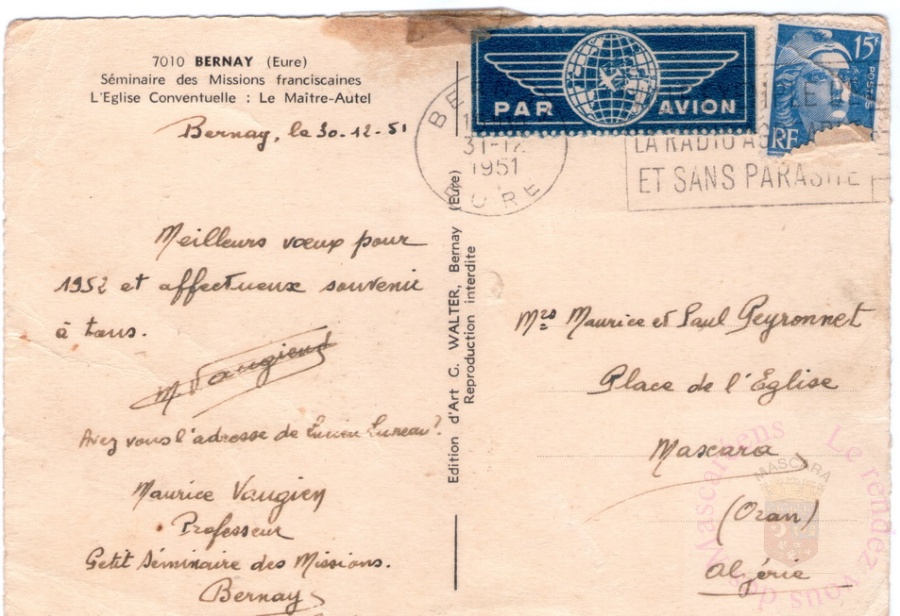 7010 BERNAY (Eure)
Séminaire des Missions franciscaines
L'Eglise Conventuelle : Le Maître-Autel
Bernay, le 30-12-51
Meilleurs vœux pour
1952 et affectueux souvenir
à tous.
M. Vaugien
Avez vous l'adresse de Lucien Luneau?
Maurice Vaugien
Professeur
Petit Séminaire des Missions.
Bernay
Edition d'Art C. WALTER, Bernay (Eure)
Reproduction interdite
PAR AVION
15F
POSTES
RF
31-12
1951
EURE
LA RADIO
ET SANS PARASITE
Mrs Maurice et Paul Peyronnet
Place de l'Eglise
Mascara
(Oran)
Algérie
MASCARA
Le rendez vous des Mascaréens